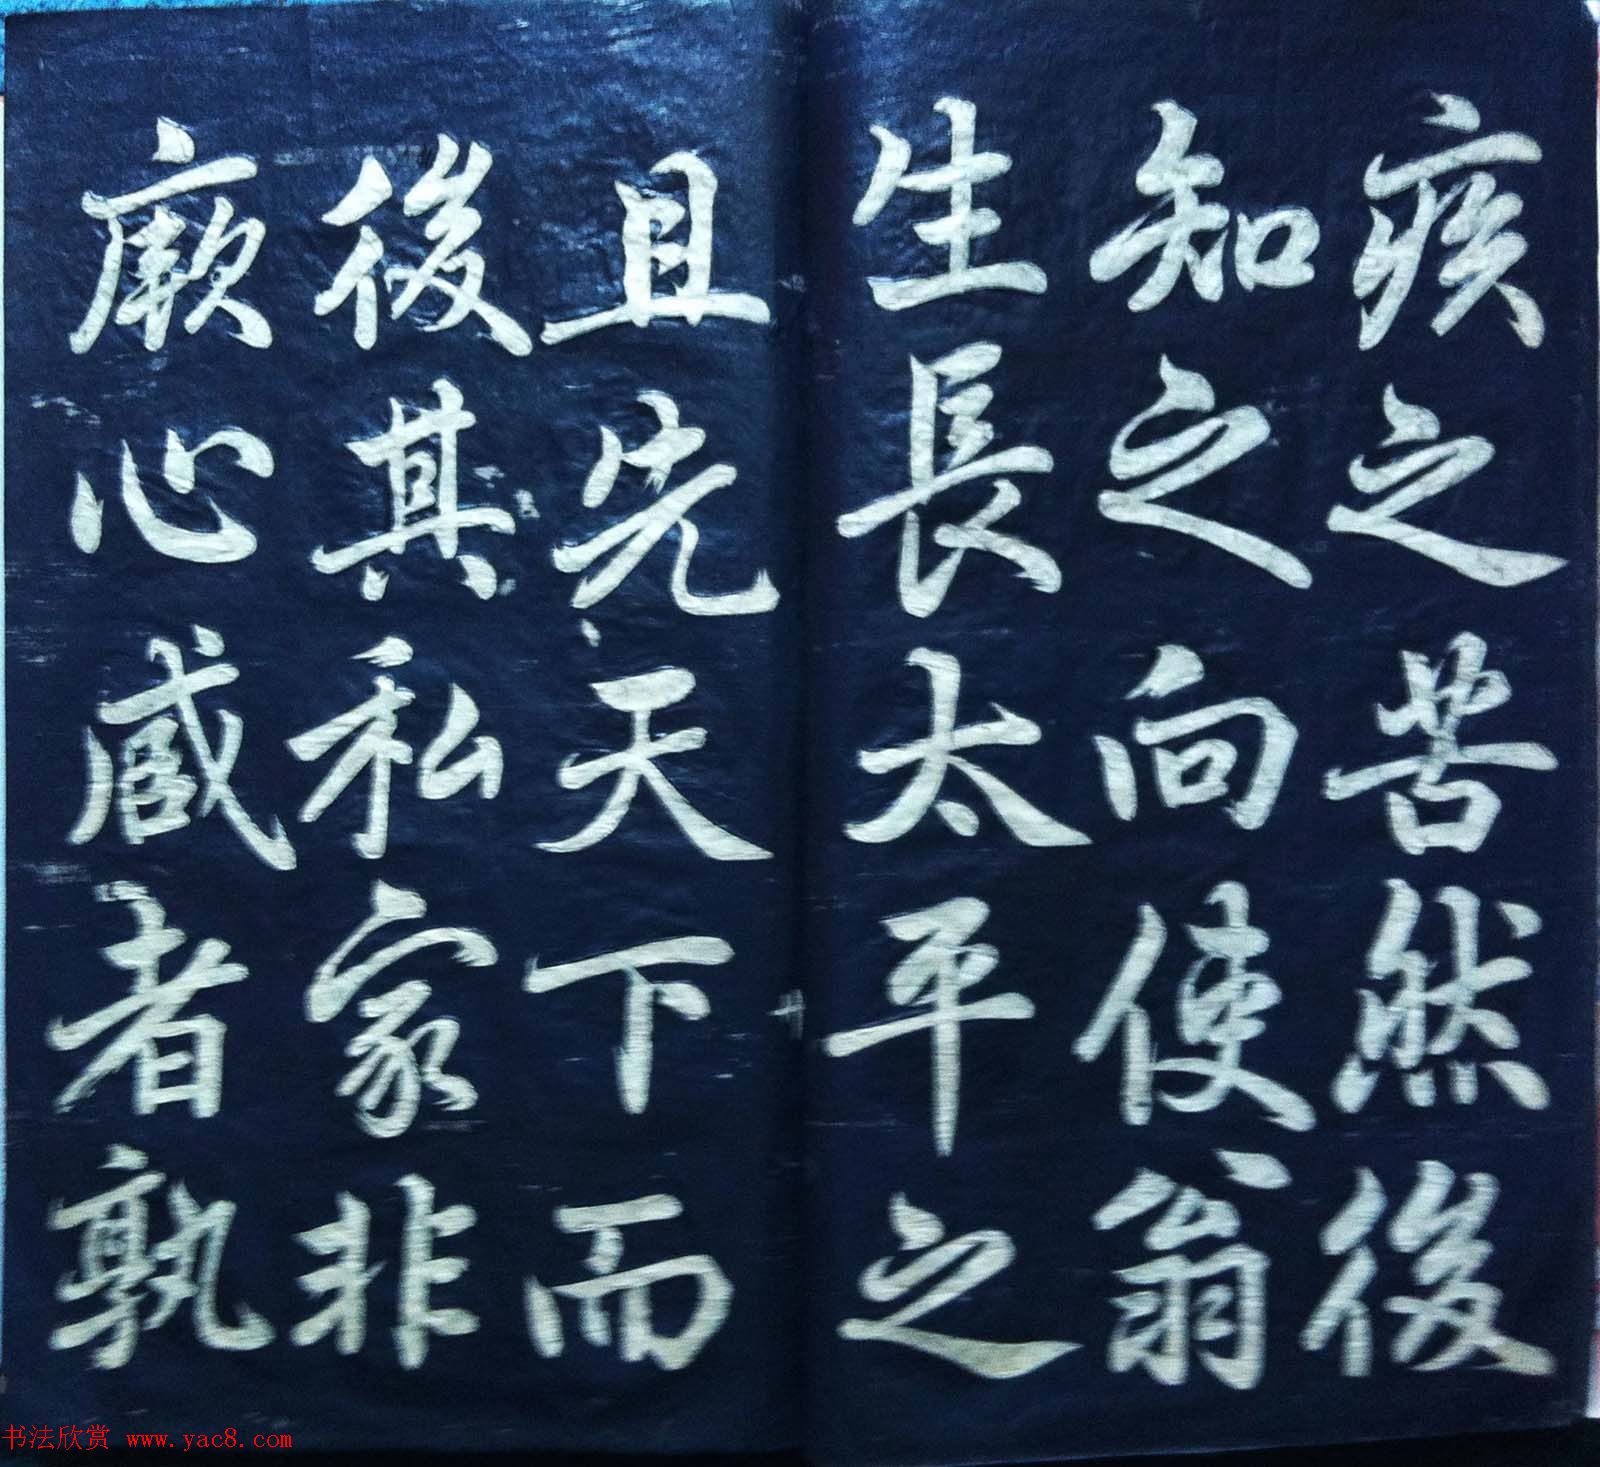 疾之苦然後
知之向使翁
生長太平之
且先天下而
後其私家非
厥心臧者孰
书法欣赏 www.yac8.com